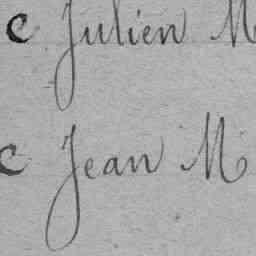 c Julien M
c Jean M